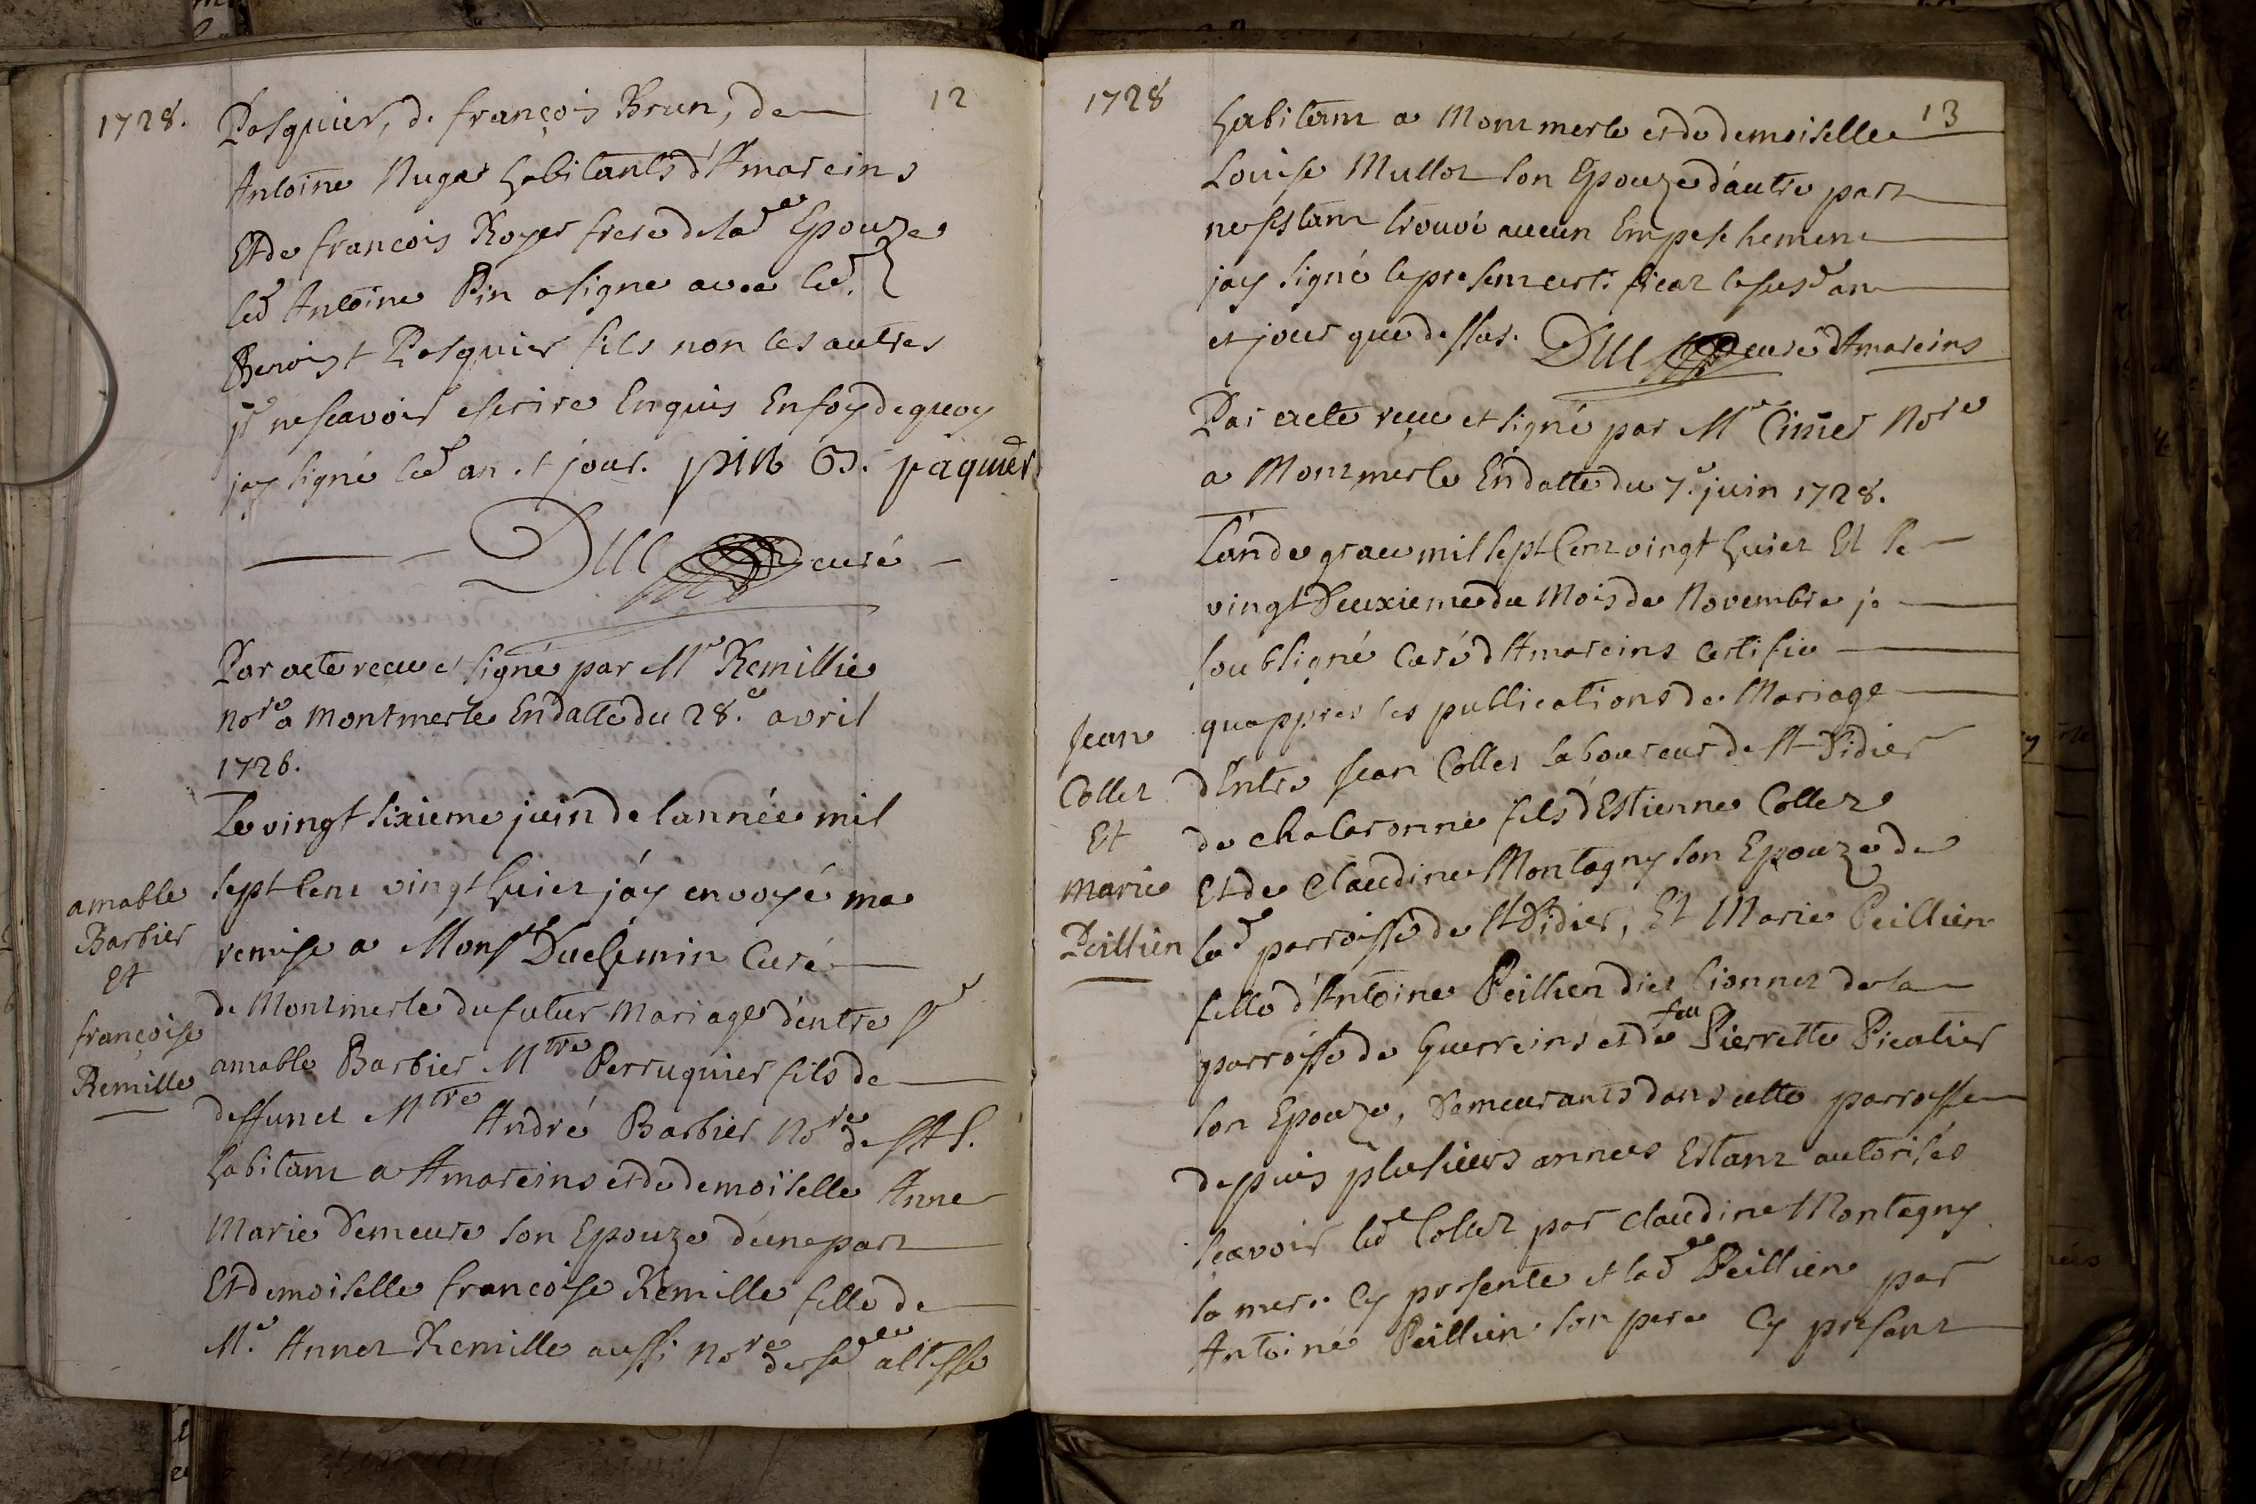 1728.
12
Pasquier, de françois Brun, de
Antoine Nugar habitants d'Amareins
Et de francois Royer frere de lad.e Epouze
led Antoine Pin a signe avec led.
Benoist Pasquier fils non les autres
pr nescavoir escrire Enquis En foy de quoy
jay signé led an et jour. pin B. paquier
curé
Par acte receu et signé par Me Remillie
nore a montmerle En datte du 28.e avril
1726.
Le vingt sixieme juin de lannée mil
sept cent vingt huict jáy envoyé ma
remise a Monsr Duchemin Curé
de Montmerle du futur Mariage déntre Sr
amable Barbier Mtre Perruquier fils de
deffunct Mtre André Barbier nore de SAS.
habitant a Amareins et de demoiselle Anne
Marie Demeure son Epouze dúne part
Et demoiselle francoise Remille fille de
Me. Annet Remille aussi nore de sad.e altesse
amable
Barbier
Et
françoise
Remille
1728
13
habitant a Montmerle et de demoiselle
Louise Mullot son Epouze d'autre part
nesestant trouvé aucun Empeschement
jay signé le present certificat le susd an
et jour que dessus. curé d'Amareins
Par acte receu et signé par Me Cimier Nore
a Montmerle En datte du 7.e juin 1728.
L'an de grace mil sept Cent vingt huict Et le
vingt Deuxieme du Mois de Novembre je
soubsigné Curé d'Amareins Certifie
quappres les publications de Mariage
d'Entre Jean Collet laboureur de St Didier
de chalaronne fils d'Estienne Collet
Et de Claudine Montagny son Epouze de
lad.e parroisse de St Didier, Et Marie Peillien
fille d'Antoine Peillien dict Lionnet de la
parroisse de Guerreins et de feu Pierrette Picalier
son Epouze, Demeurants dans cette parroisse
depuis plusieurs années Estant autorisés
scavoir led Collet par Claudine Montagny
sa mere Cy presente et lad.e Peillien par
Antoine Peillien son pere Cy present
Jean
Collet
Et
Marie
Peillien